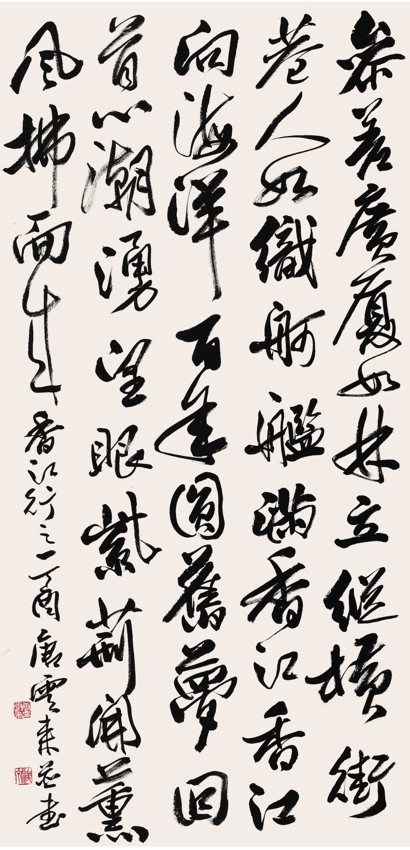 參差廣廈如林立縱橫街
巷人如織舸艦滿香江香江
向海洋百年圓舊夢回
首心潮湧望眼紫荊開薰
風拂面来香江行之一丁酉唐雲来並书